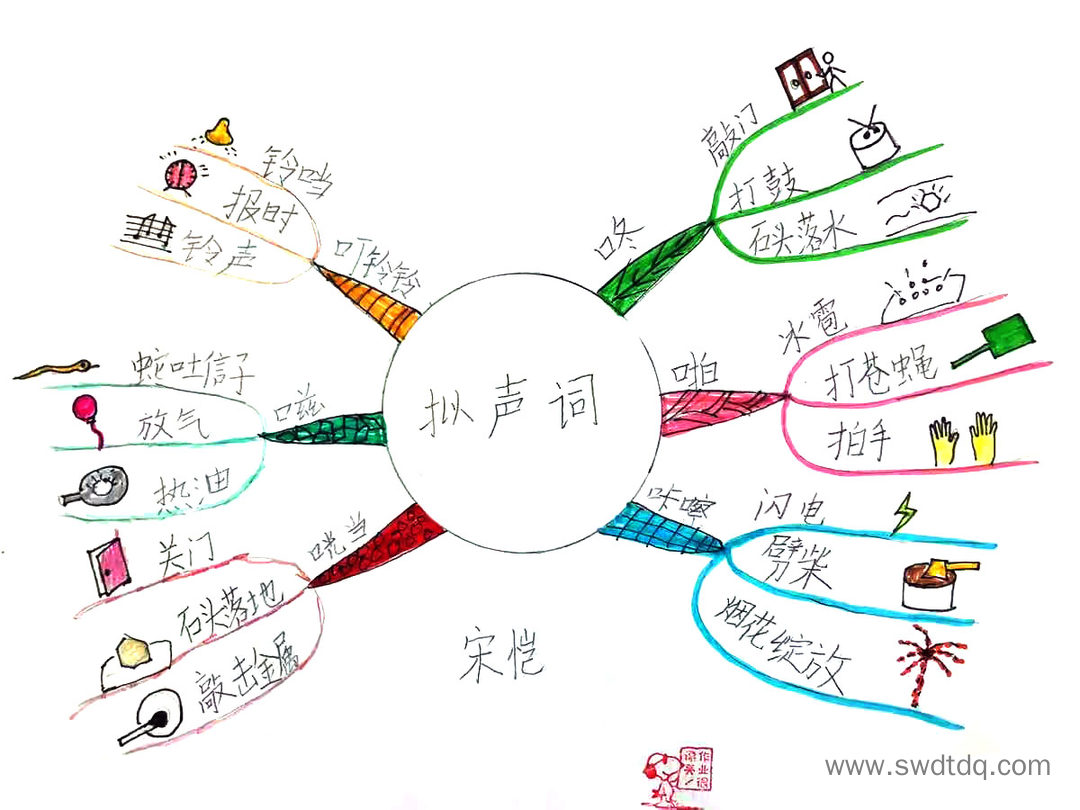 拟声词
咚
敲门
打鼓
石头落水
啪
冰雹
打苍蝇
拍手
咔嚓
闪电
劈柴
烟花绽放
咣当
关门
石头落地
敲击金属
嗞
蛇吐信子
放气
热油
叮铃铃
铃铛
报时
铃声
宋恺
www.swdtdq.com